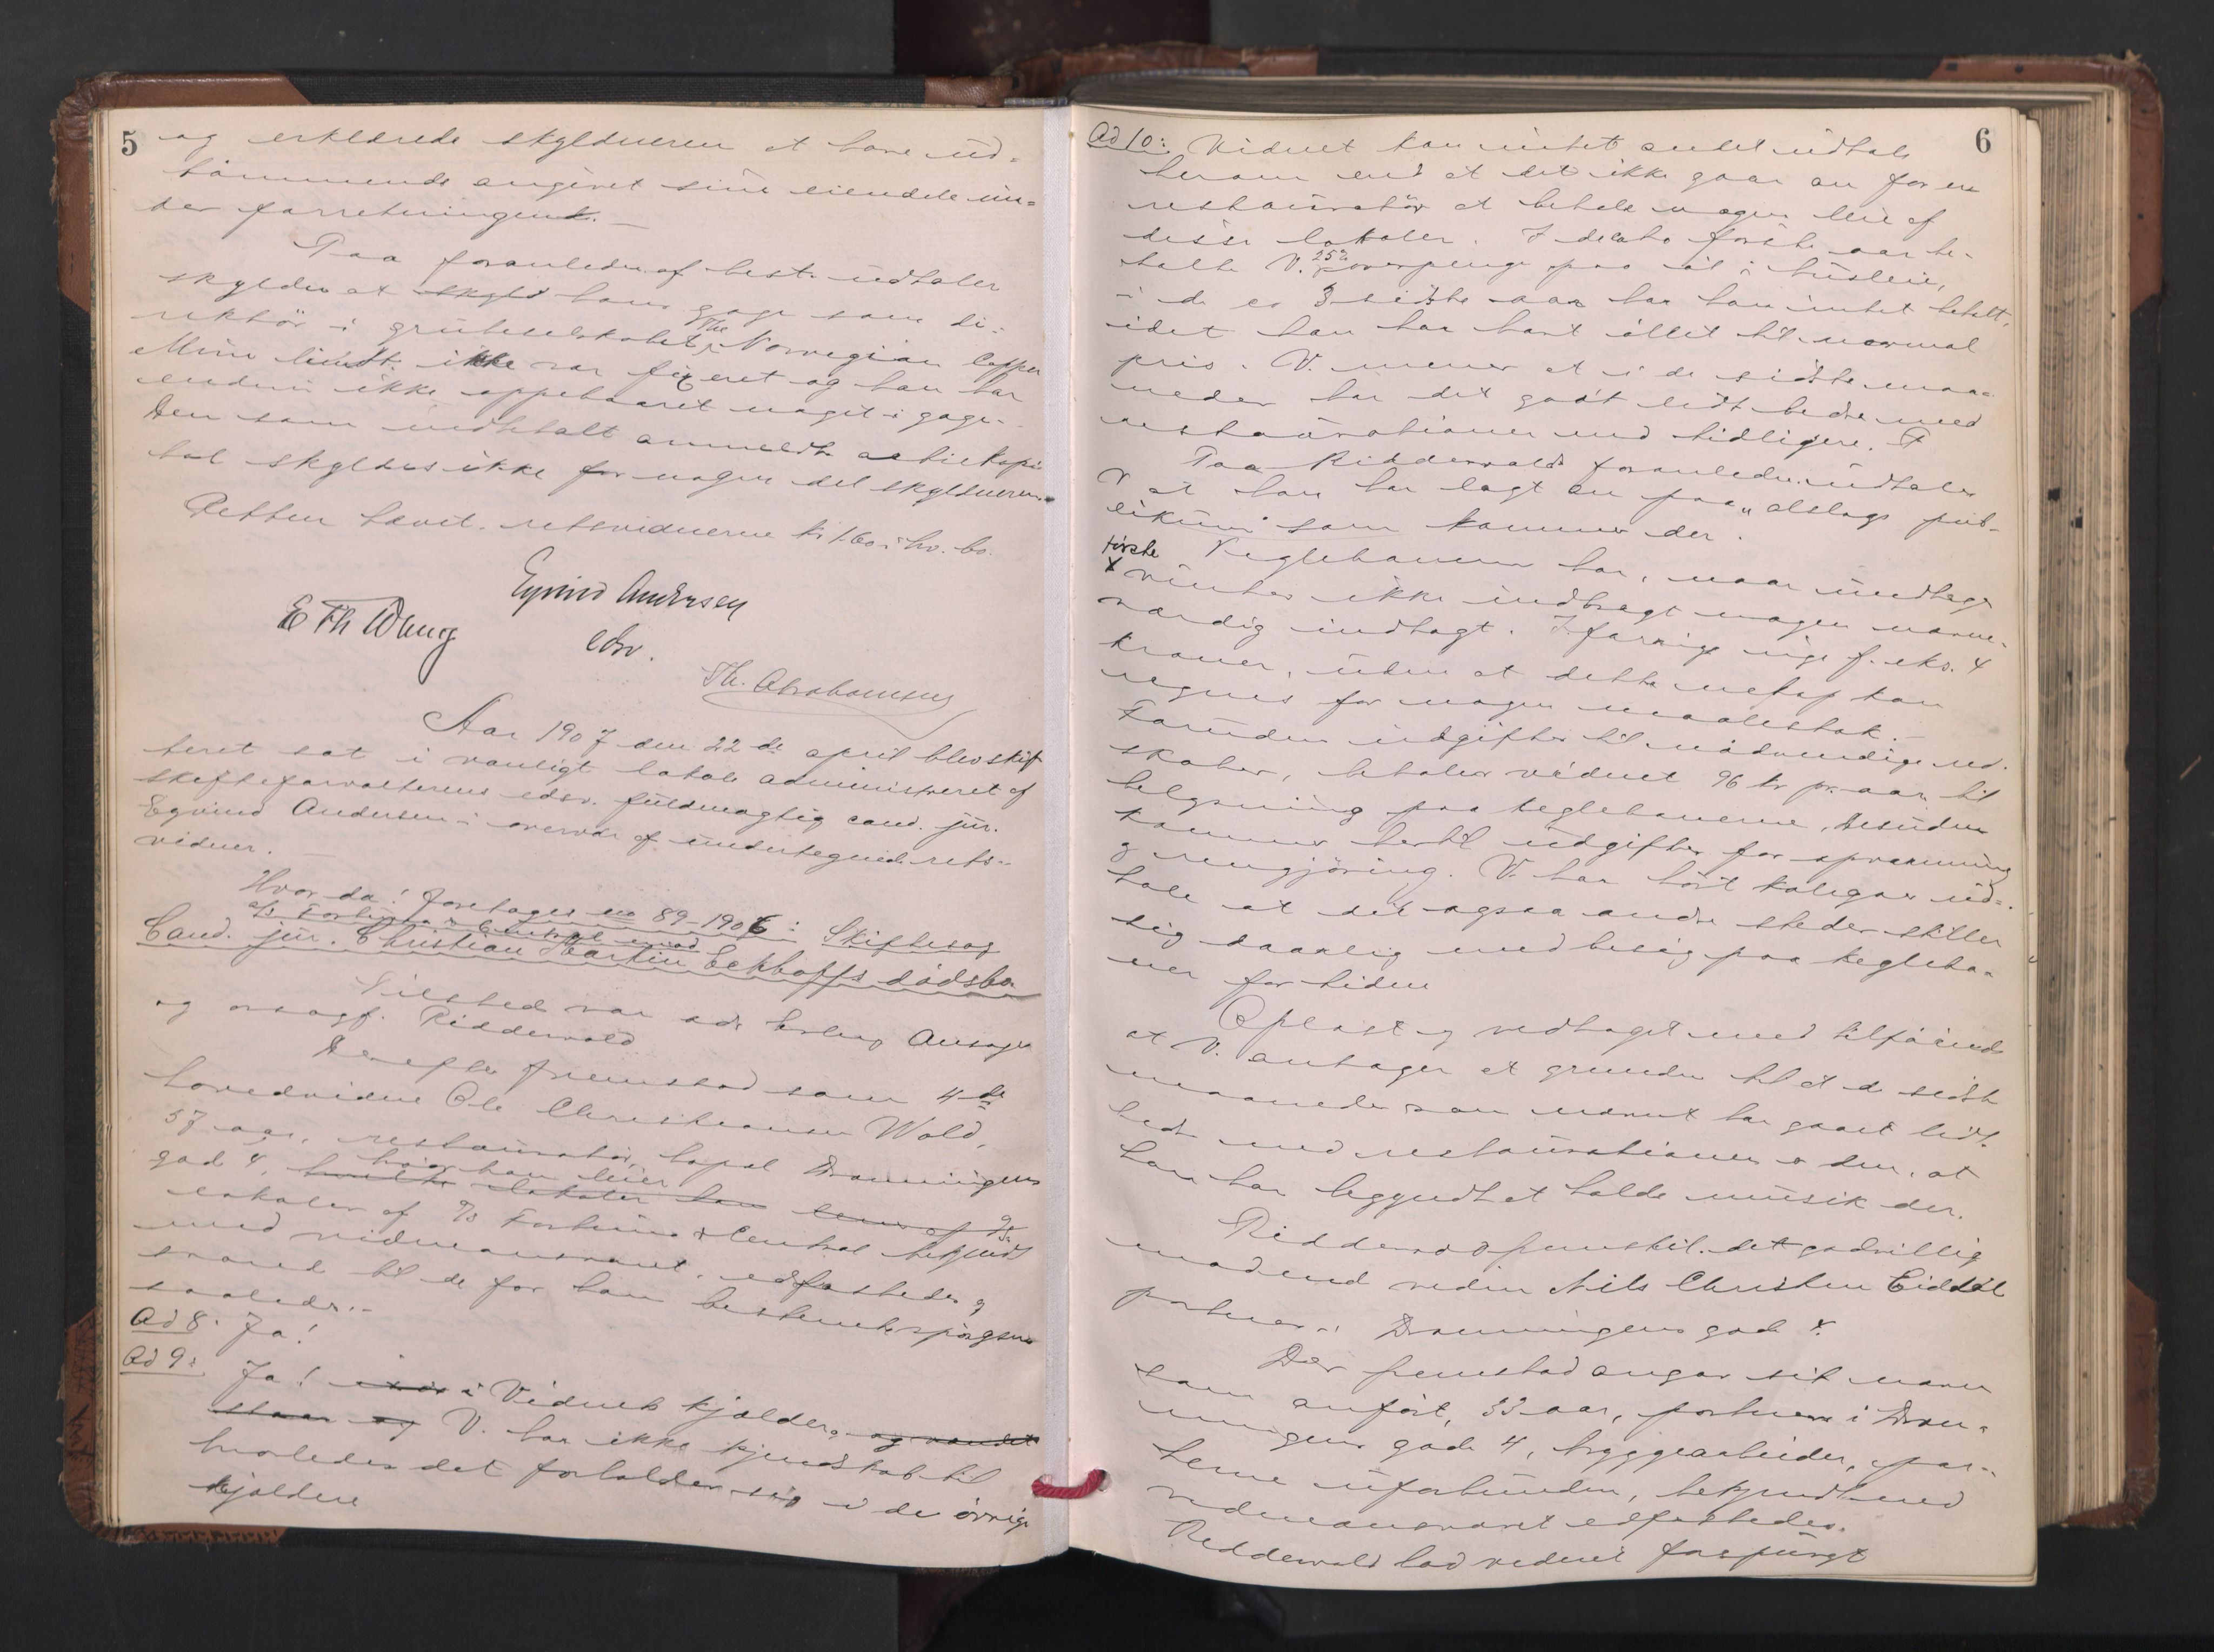 5
og erklærede skyldneren at have ud-
tømmende angivet sine eiendele un-
der forretningen. —
Paa foranledn. af best. udtaler
skyldn at skyld hans gage som di-
rektør i grubeselskabet The Norwegian Copper
Mine limdt. ikke var fixeret og han har
endnu ikke oppebaaret noget i gage.
Den som indbetalt anmeldte actiekapi
tal skyldes ikke for nogen del skyldneren.
Retten hævet. retsvidnerne kr 1.60 i hv. bo.
Eyvind Andersen
E Th Wang
edsv.
Th. Abrahamsen
Aar 1907 den 22de april blev skif
teret sat i vanligt lokale administreret af
skifteforvalterens edsv. fuldmægtig cand. jur.
Eyvind Andersen i overvær af undertegnede rets-
vidner. —
Hvor da! foretages no 89-1906: Skiftesag
a/s Fortuna & Central mod
Cand. jur. Christian Martin Eckhoffs dødsbo
Tilsted var adv.
og orsagf. Riddervold
Derefter fremstod som 4de
hovedvidne Ole Christiansen Wold,
57 aar, restauratør, bopæl Dronningens
gade 4, hvor han leier
hvilke lokaler han leier af A/S
lokaler af A/S Fortuna & Central bekjendt
med vidneansvaret, edfæstedes og
svared til de for ham bestemte spørgsm
saaledes. -
Ad 8. Ja!
Ad 9: Ja! i Vidnets kjelder, og vandet
staar og V. har ikke kjendskab til
hvorledes det forholder sig i de øvrige
kjeldere
6
Ad 10: Vidnet kan intet andet udtale
herom end at det ikke gaar an for en
restauratør at betale nogen leie af
disse lokaler. I de første aar be-
talte V. 25% paa øl i husleie,
i de 3 sidste aar har han intet betalt,
idet han har havt øllet til normal
pris. V. mener at i de sidste maa-
neder har det gaat lidt bedre med
restaurationen end tidligere. F
Paa Riddervolds foranledn. udtaler
V at han har lagt an paa „alslags pub-
likum" som kommer der.
Keglebanen har, naar undtages
første
x vinter ikke indbragt nogen nævne-
værdig indtægt. I forrige uge f. eks. 4
kroner, uden at dette netop kan
regnes for nogen maalestok. -
Foruden udgifter til nødvendige red-
skaber, betaler vidnet 96 kr pr. aar til
belysning paa keglebanerne, Desuden
kommer hertil udgifter for opvarmning
og rengjøring. V. har hørt kolegaer ud-
tale at det ogsaa andre steder stiller
sig daarlig med besøg paa kegleba-
ner for tiden
Oplæst og vedtaget med tilføiende
at V. antager at grunden til at de sidste
maaneder som nævnt har gaaet lidt
bedre med restaurationen er den, at
han har begyndt at holde musik der.
Riddervold fremstil. det godvillig
mødende vidne Nils Christen Eidsæl
portner i Dronningens gade 4.
Der fremstod angav sit navn
som anført, 33 aar, portner i Dron-
ningens gade 4, bryggearbeider, par-
terne uforbunden, bekjendt med
vidneansvaret edfæstedes.
Riddervold bad vidnet forspurgt